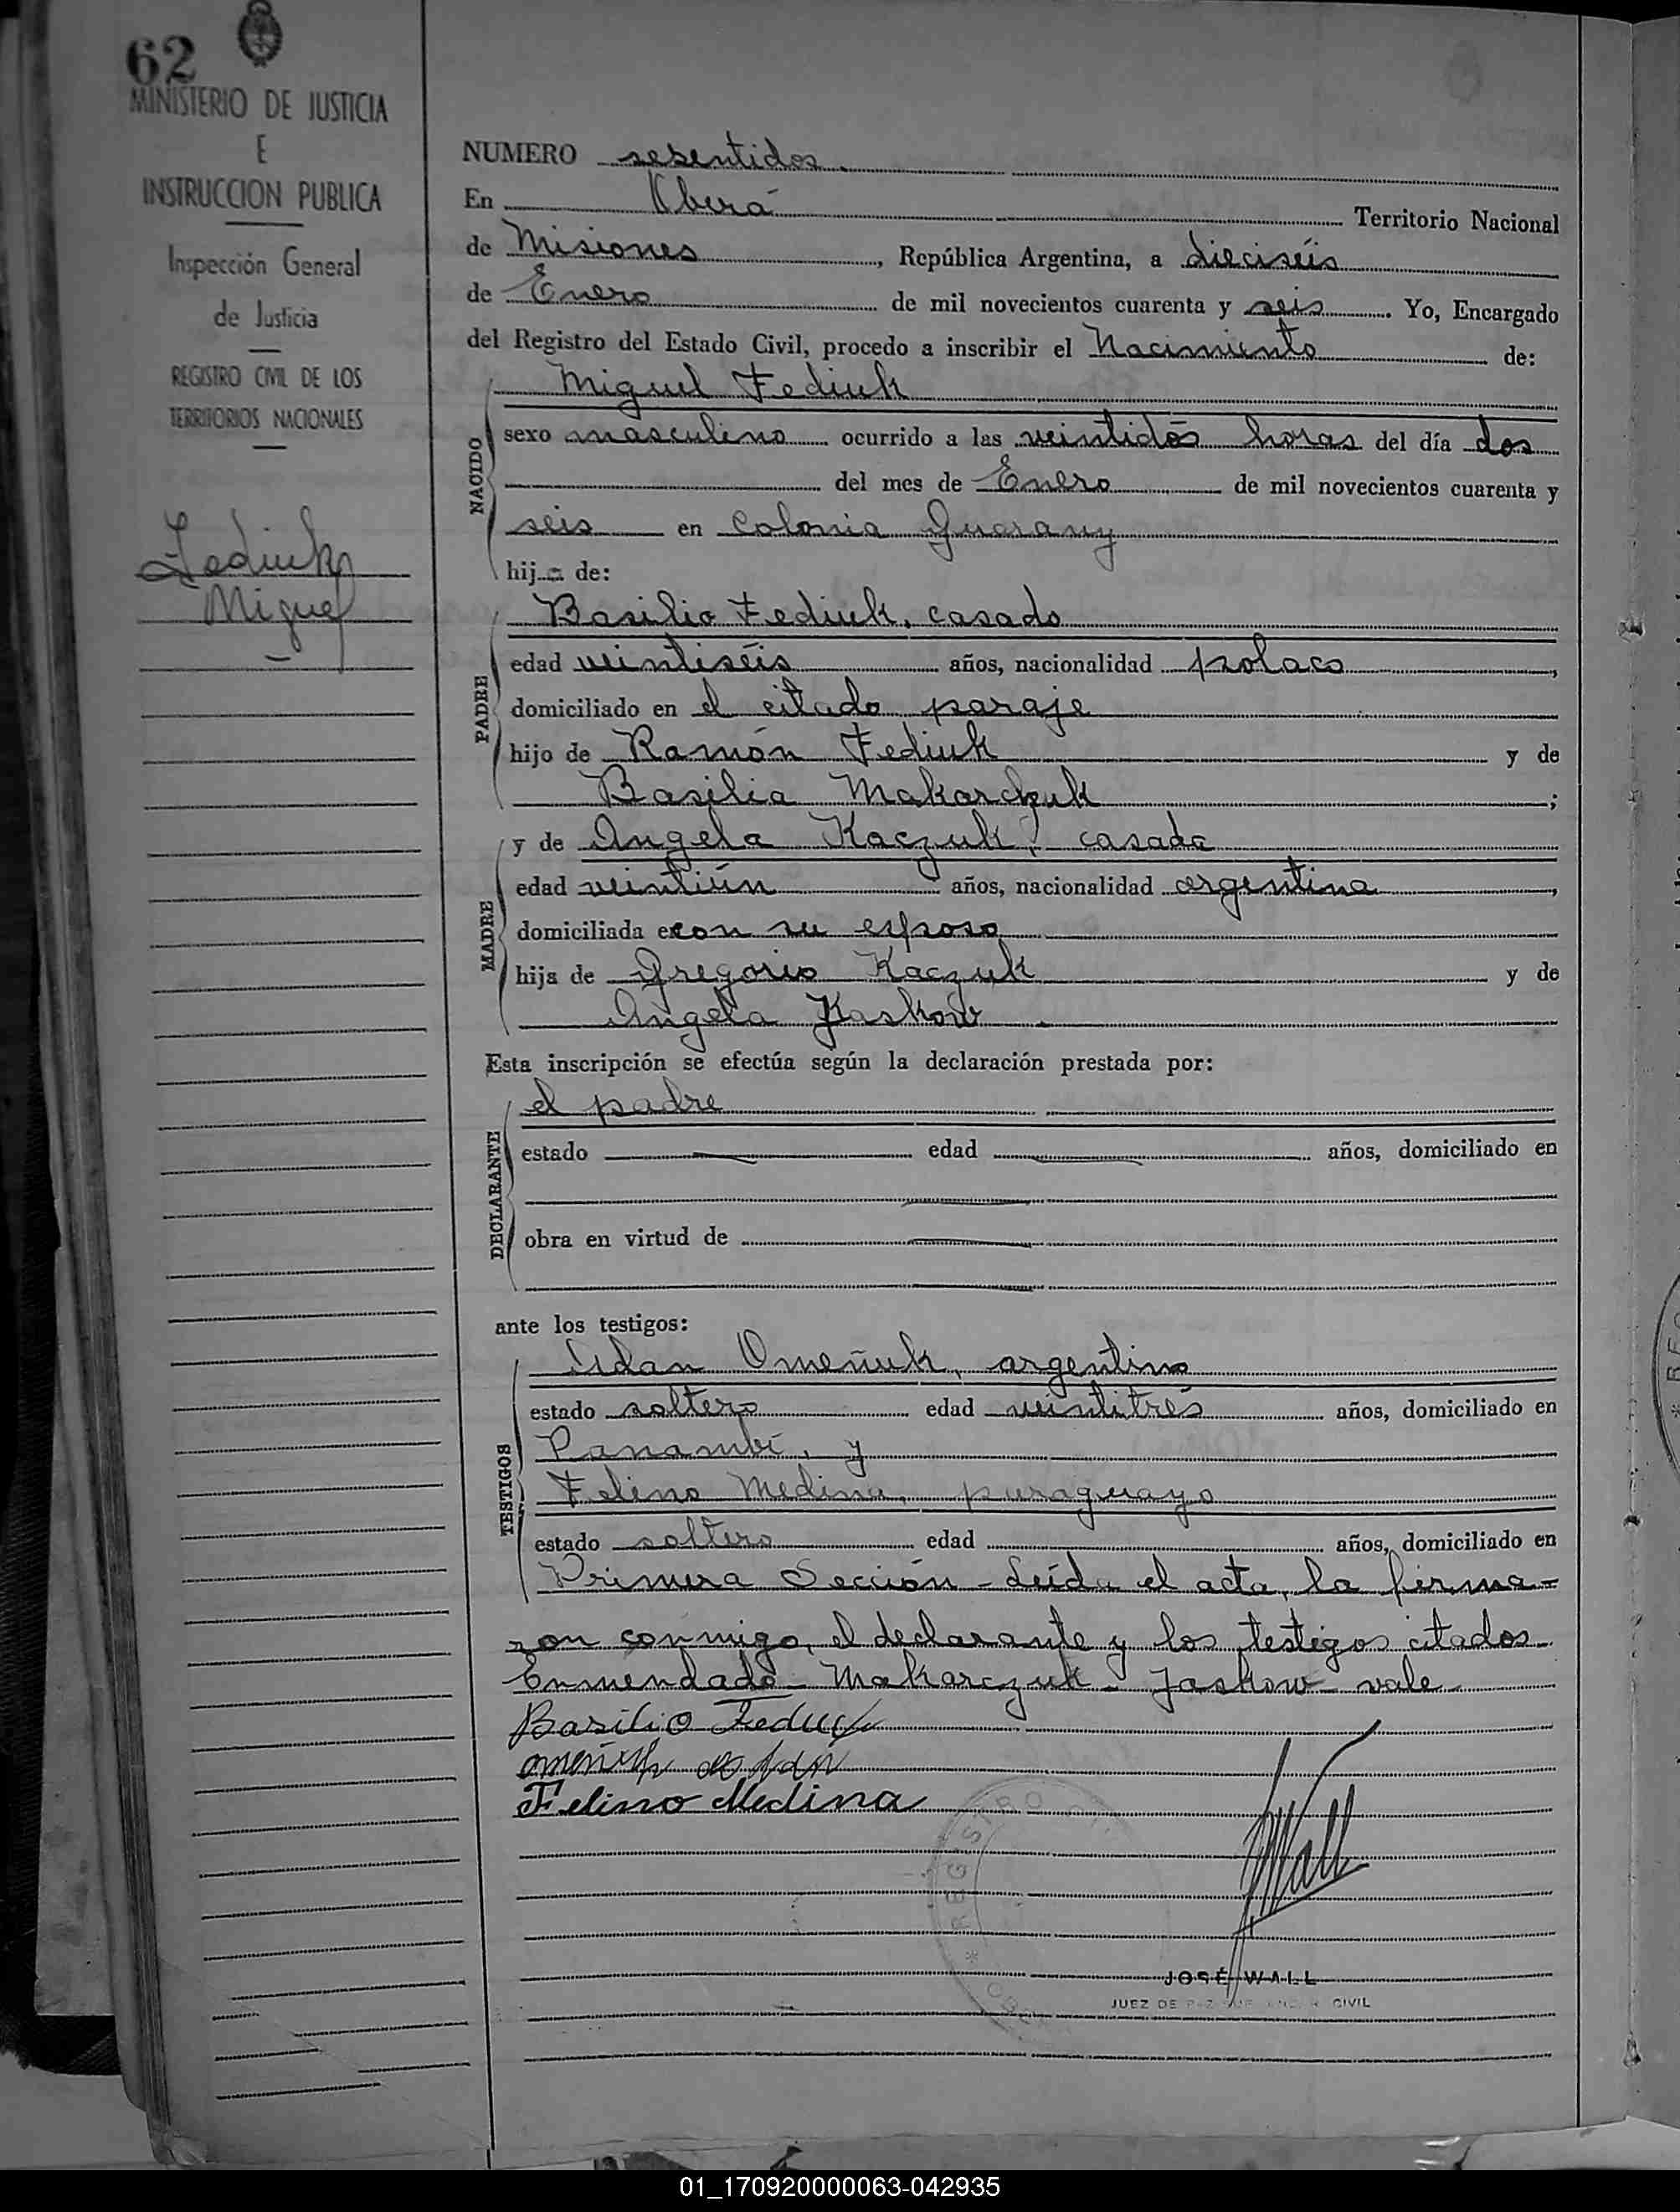 62
MINISTERIO DE JUSTICIA
E
INSTRUCCION PUBLICA
Inspección General
de Justicia
REGISTRO CIVIL DE LOS
TERRITORIOS NACIONALES
Fediuk
Miguel
NUMERO sesentidos
En Oberá Territorio Nacional
de Misiones, República Argentina, a dieciséis
de Enero de mil novecientos cuarenta y seis. Yo, Encargado
del Registro del Estado Civil, procedo a inscribir el Nacimiento de:
NACIDO
Miguel Fediuk
sexo masculino ocurrido a las veintidós horas del día dos
del mes de Enero de mil novecientos cuarenta y
seis en Colonia Guarany
hijo de:
PADRE
Basilio Fediuk, casado
edad veintiséis años, nacionalidad polaco,
domiciliado en el citado paraje
hijo de Ramón Fediuk y de
Basilia Makarczuk;
MADRE
y de Angela Kaczuk, casada
edad veintiún años, nacionalidad argentina,
domiciliada econ su esposo
hija de Gregorio Kaczuk y de
Angela Jaskow.
Esta inscripción se efectúa según la declaración prestada por:
DECLARANTE
el padre
estado edad años, domiciliado en
obra en virtud de
ante los testigos:
TESTIGOS
Adan Omeñuk, argentino
estado soltero edad veintitrés años, domiciliado en
Panambí, y
Felino Medina, paraguayo
estado soltero edad años, domiciliado en
Primera Sección - Leída el acta, la firma-
ron conmigo, el declarante y los testigos citados.
Enmendado - Makarczuk - Jaskow - vale.
Basilio Feduk
Omeñuk Adan
Felino Medina
Wall
REGISTRO
JOSÉ WALL
JUEZ DE PAZ CIVIL
01_170920000063-042935